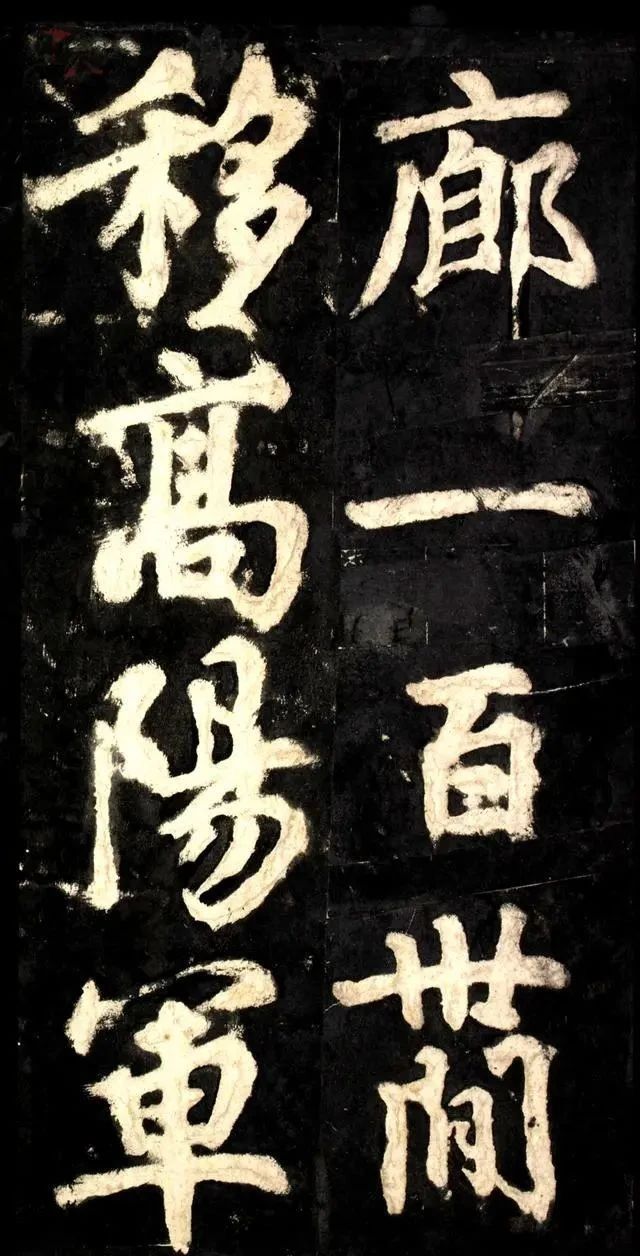 廊一百卅間
移高陽軍